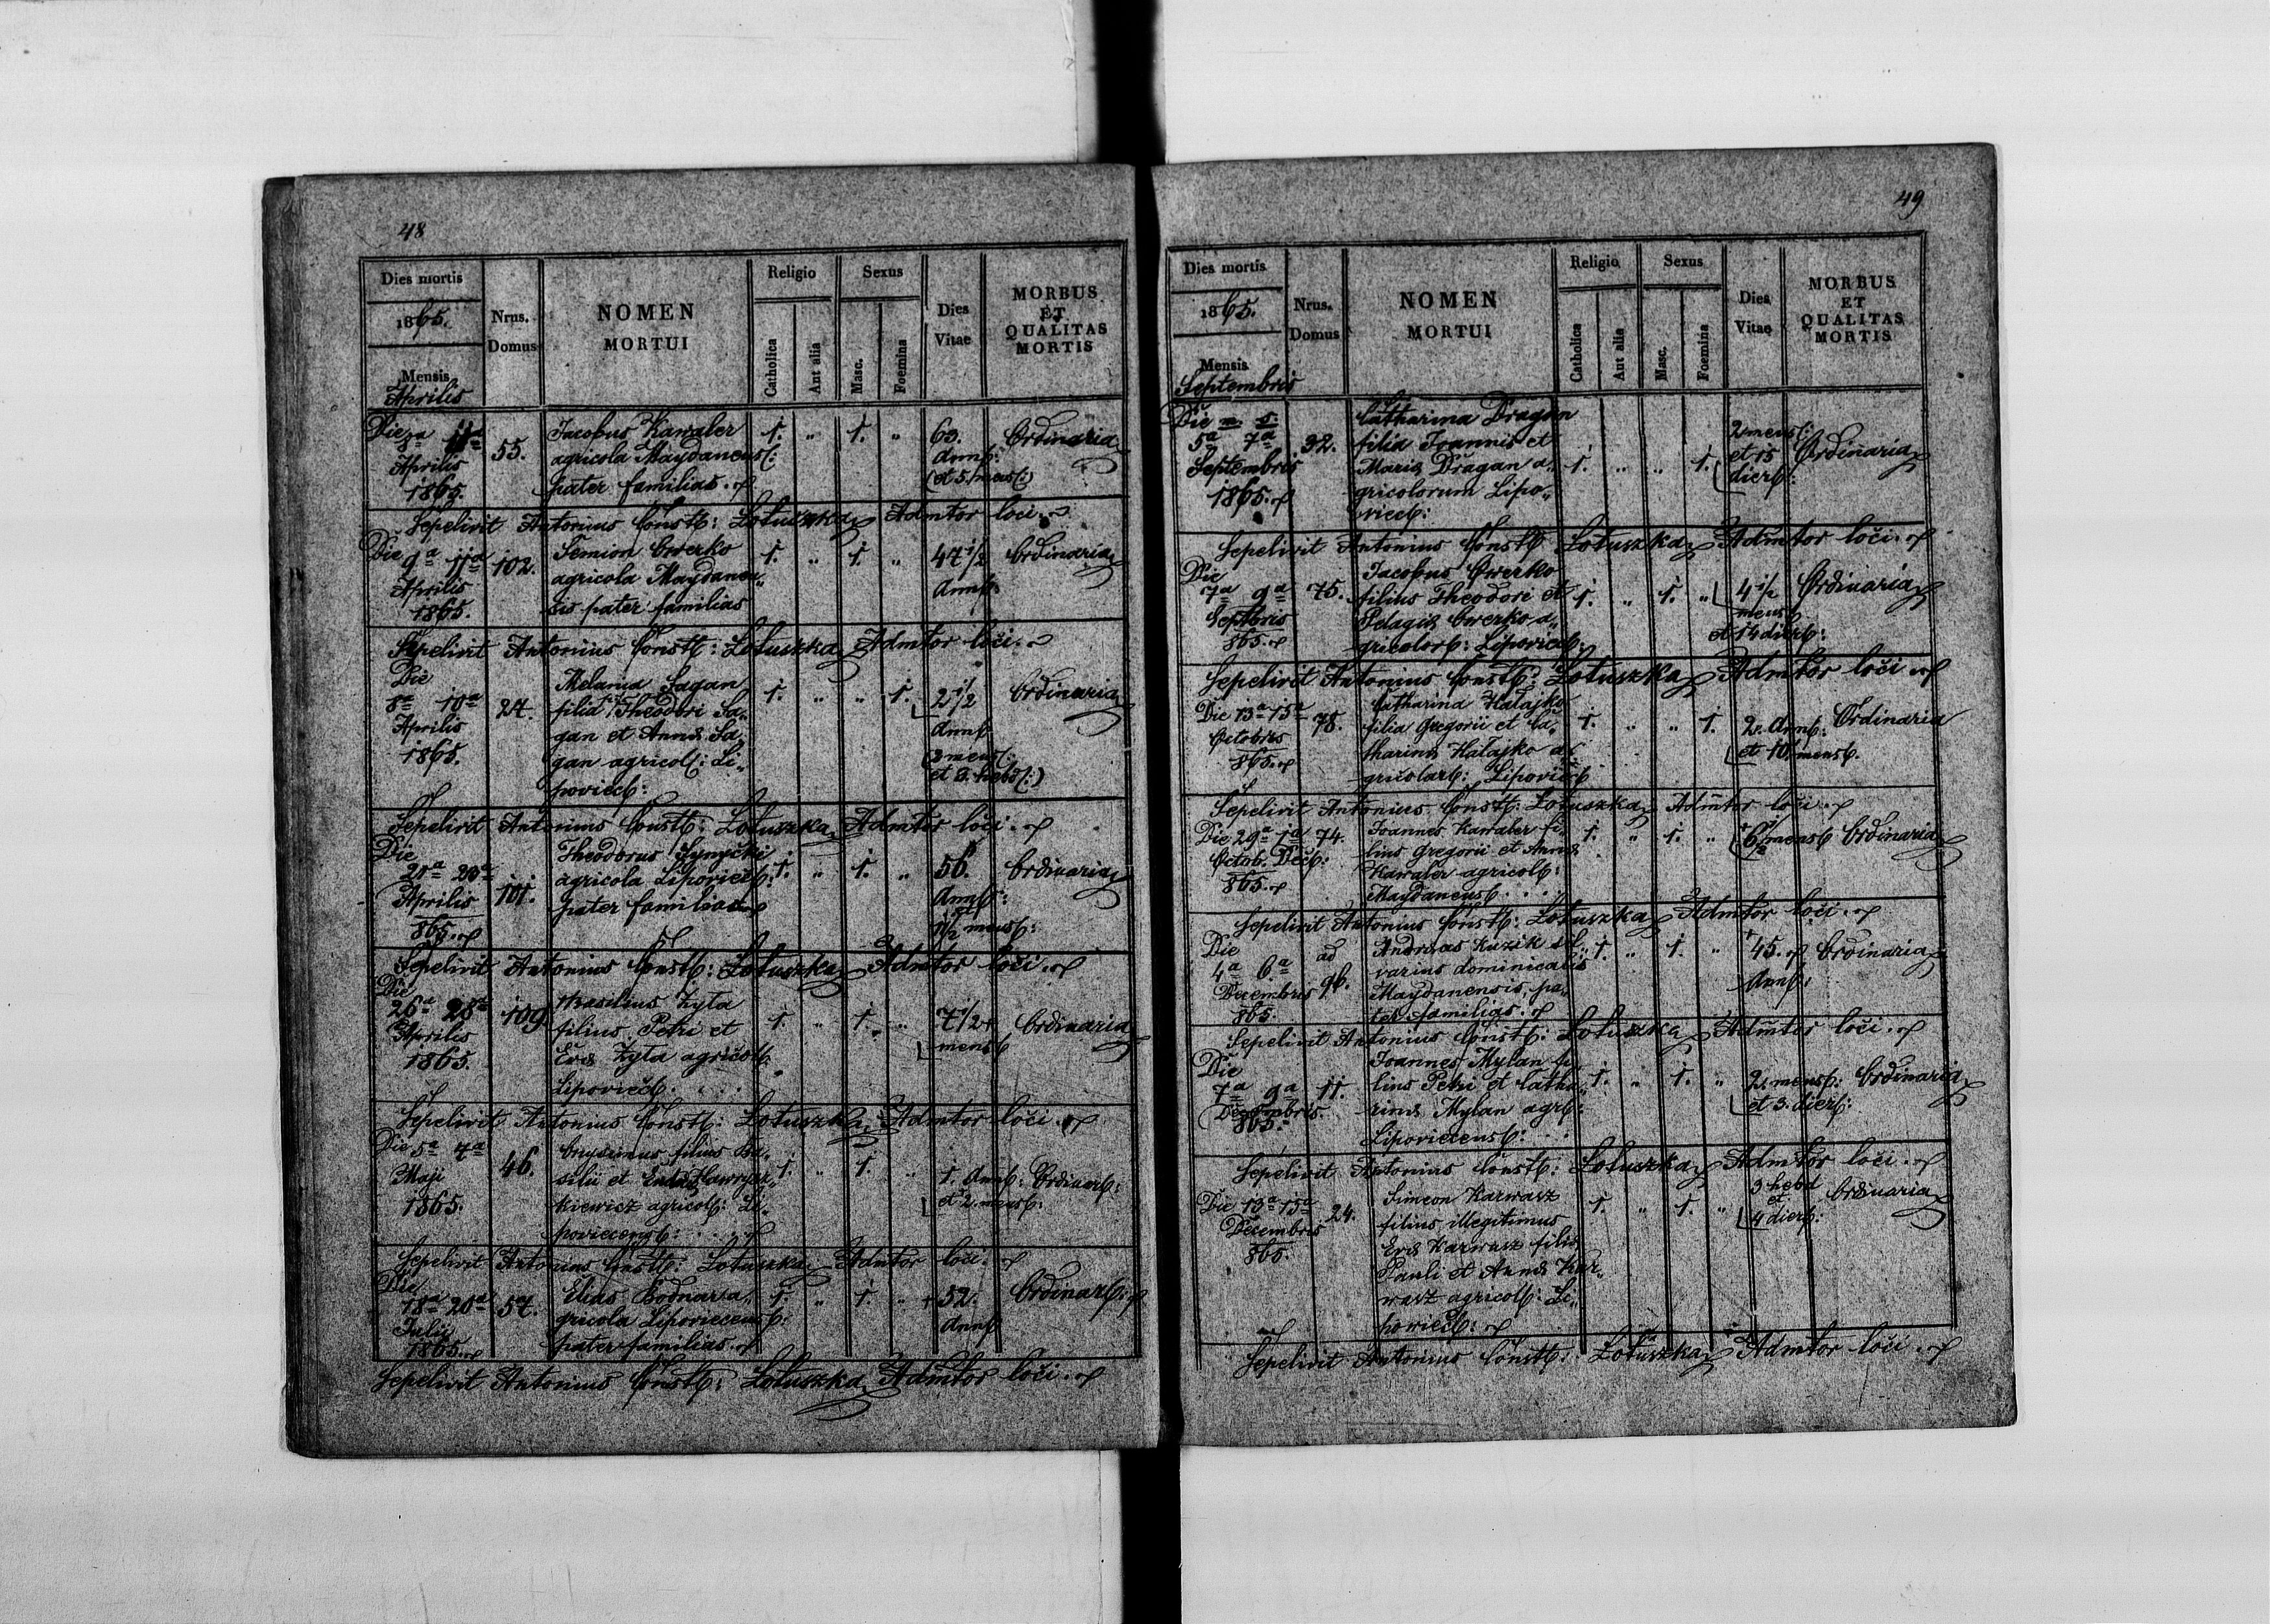 48
Dies mortis
1865.
Mensis
Aprilis
Nrus.
Domus
NOMEN
MORTUI
Religio
Catholica
Aut alia
Sexus
Masc.
Foemina
Dies
Vitae
MORBUS
ET
QUALITAS
MORTIS
Die 11a
Aprilis
1865.
55.
Jacobus Kawaler
agricola Maydanens:
pater familias.
1. " 1. "
63.
Ann:
(et 5. mens:)
Ordinaria
Sepelivit Antonius Const: Łotuszka Admtor loci.
Die 9a 11a
Aprilis
1865.
102.
Semion Cwerko
agricola Maydanen„
sis pater familias
1. " 1. "
47 1/2
Ann:
Ordinaria
Sepelivit Antonius Const: Łotuszka Admtor loci.
Die
8a 10a
Aprilis
1865.
24.
Melania Sagan
filia Theodori Sa„
gan et Annæ Sa„
gan agricol: Li„
poviec:
1. " " 1.
2 1/2
Ann:
Ordinaria
Sepelivit Antonius Const: Łotuszka Admtor loci.
Die
21a 23a
Aprilis
865.
101.
Theodorus
agricola Lipoviec:
pater familias
1. " 1. "
56.
Ann:
1/2 mens:
Ordinaria
Sepelivit Antonius Const: Łotuszka Admtor loci.
Die
26a 28a
Aprilis
1865.
109
Basilius Zyła
filius Petri et
Evæ Zyła agricol:
Lipoviec:
1. " 1. "
7 1/2
mens:
Ordinaria
Sepelivit Antonius Const: Łotuszka Admtor loci.
Die 5a 7a
Maji
1865.
46.
Onysimus filius Ba„
silii et Hawrysz„
kiewicz agricol: Li„
poviecens:
1. " 1. "
1. Ann:
et 2. mens:
Ordinar:
Sepelivit Antonius Const: Łotuszka Admtor loci.
Die
18a 20a
Julii
1865.
57.
Elias Bodnar a„
gricola Lipoviecens:
pater familias.
1. " 1. "
52.
Ann:
Ordinar:
Sepelivit Antonius Const: Łotuszka Admtor loci.
49
Dies mortis
1865.
Mensis
Septembris
Nrus.
Domus
NOMEN
MORTUI
Religio
Catholica
Aut alia
Sexus
Masc.
Foemina
Dies
Vitae
MORBUS
ET
QUALITAS
MORTIS
Die
5a 7a
Septembris
1865.
32.
Catharina Dragan
filia Joannis et
Mariæ Dragan a„
gricolorum Lipo„
viec:
1. " " 1.
2 mens:
et 15
dier:
Ordinaria
Sepelivit Antonius Const: Łotuszka Admtor loci.
Die
7a 9a
Septbris
865.
75.
Jacobus Cwerko
filius Theodori et
Pelagiæ Cwerko a„
gricolor: Lipoviec:
1. " 1. "
4 1/2
mens
et 14 dier:
Ordinaria
Sepelivit Antonius Const: Łotuszka Admtor loci.
Die 13a 15a
Octobris
865.
78.
Catharina Hałajko
filia Gregorii et Ca„
tharinæ Hałajko a„
gricolar: Lipoviec:
1. " " 1.
2. Ann:
et 10 mens:
Ordinaria
Sepelivit Antonius Const: Łotuszka Admtor loci.
Die 29a 1a
Octob. Dec:
865.
74.
Joannes Kawaler fi„
lius Gregorii et Annæ
Kawaler agricol:
Maydanens:
1. " 1. "
6 mens:
Ordinaria
Sepelivit Antonius Const: Łotuszka Admtor loci.
Die
4a 6a
Decembris
865.
ad
96.
Andreas Kuzik sil„
varius dominicalis
Maydanensis, pa„
ter familias.
1. " 1. "
45.
Ann:
Ordinaria
Sepelivit Antonius Const: Łotuszka Admtor loci.
Die
7a 9a
Decembris
865.
11.
Joannes Mylan fi„
lius Petri et Catha„
rinæ Mylan agr:
Lipoviecens:
1. " 1. "
2. mens:
et 3. dier:
Ordinaria
Sepelivit Antonius Const: Łotuszka Admtor loci.
Die 13a 15a
Decembris
865.
24.
Simeon Karwasz
filius illegitimus
Evæ Karwasz filiæ
Pauli et Annæ Kar„
wasz agricol: Li„
powiec:
1. " 1. "
3 hebd
et
4 dier:
Ordinaria
Sepelivit Antonius Const: Łotuszka Admtor loci.